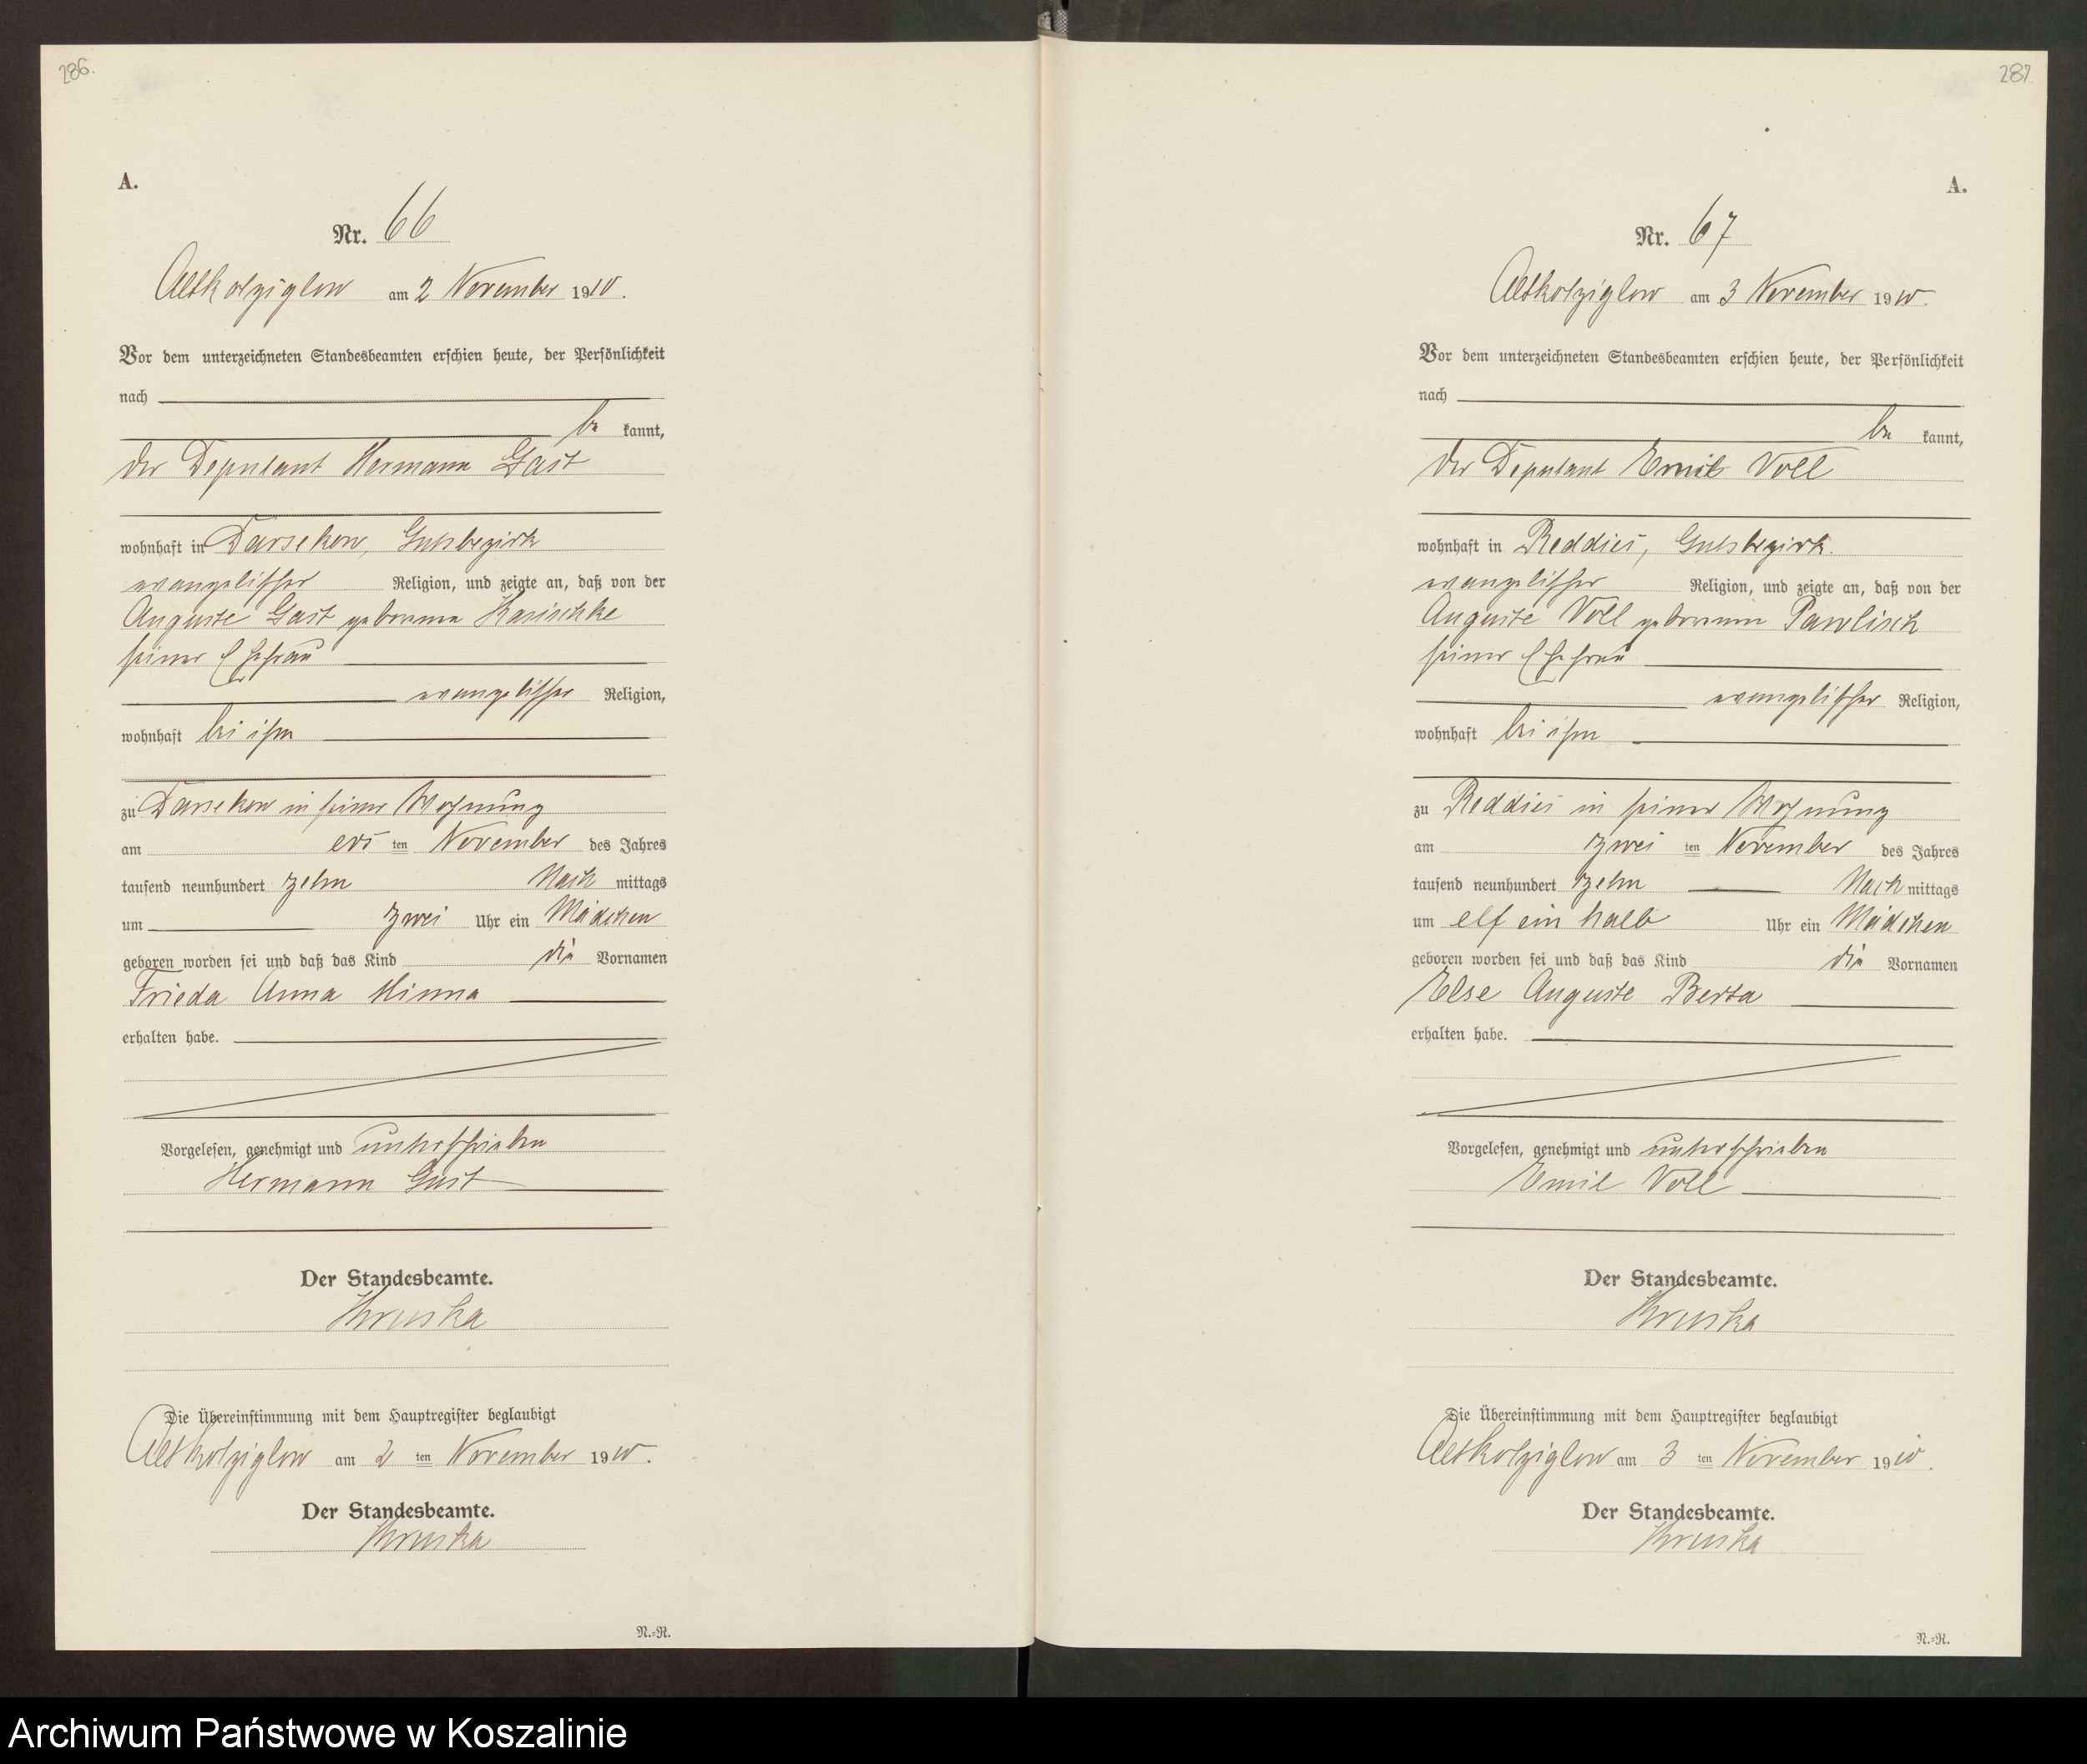 286.
A.
Nr. 66
Altkolziglow am 2 November 1910.
Vor dem unterzeichneten Standesbeamten erschien heute, der Persönlichkeit
nach
be kannt,
der Deputant Hermann Gast
wohnhaft in Darsekow, Gutsbezirk
evangelischer Religion, und zeigte an, daß von der
Auguste Gast geborenen Karischke
seiner Ehefrau
evangelischer Religion,
wohnhaft bei ihm
zu Darsekow in seiner Wohnung
am ers ten November des Jahres
tausend neunhundert zehn Nach mittags
um zwei Uhr ein Mädchen
geboren worden sei und daß das Kind die Vornamen
Frieda Anna Minna
erhalten habe.
Vorgelesen, genehmigt und unterschrieben
Hermann Gast
Der Standesbeamte.
Kruska
Die Übereinstimmung mit dem Hauptregister beglaubigt
Altkolziglow am 2 ten November 1910.
Der Standesbeamte.
Kruska
N.-R.
287.
A.
Nr. 67
Altkolziglow am 3 November 1910.
Vor dem unterzeichneten Standesbeamten erschien heute, der Persönlichkeit
nach
be kannt,
der Deputant Emil Voll
wohnhaft in Reddies, Gutsbezirk.
evangelischer Religion, und zeigte an, daß von der
Auguste Voll geborenen Pawlisch
seiner Ehefrau
evangelischer Religion,
wohnhaft bei ihm
zu Reddies in seiner Wohnung
am zwei ten November des Jahres
tausend neunhundert zehn Nach mittags
um elf ein halb Uhr ein Mädchen
geboren worden sei und daß das Kind die Vornamen
Else Auguste Berta
erhalten habe.
Vorgelesen, genehmigt und unterschrieben
Emil Voll
Der Standesbeamte.
Kruska
Die Übereinstimmung mit dem Hauptregister beglaubigt
Altkolziglow am 3 ten November 1910.
Der Standesbeamte.
Kruska
N.-R.
Archiwum Państwowe w Koszalinie